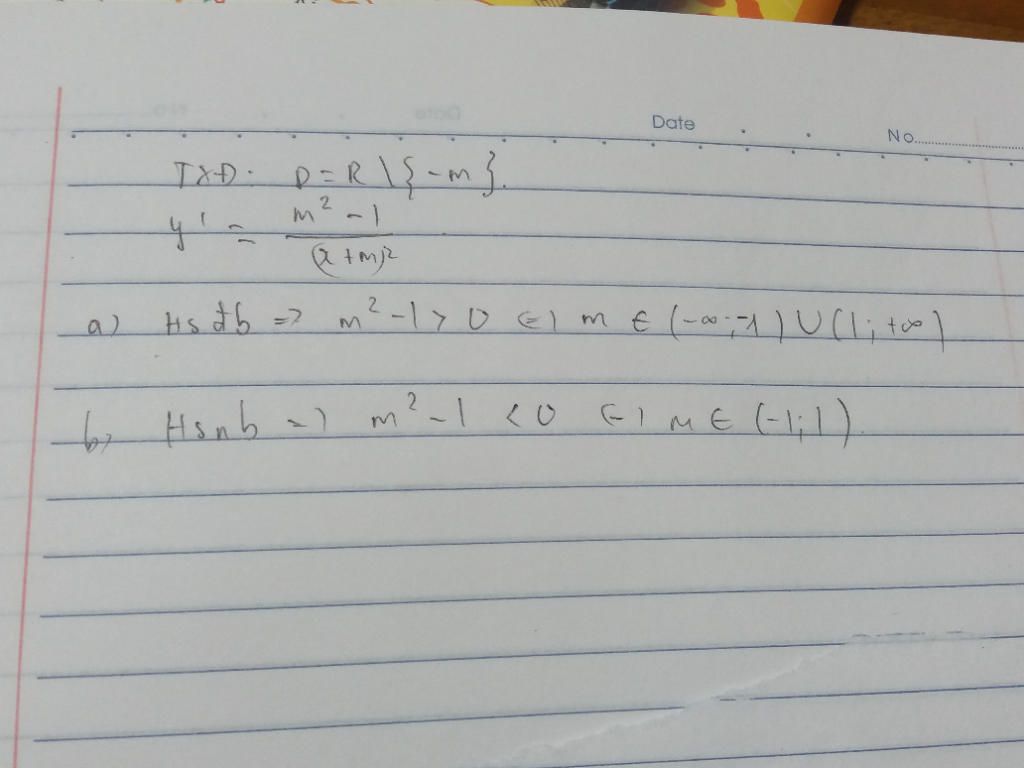 Date
No
TXĐ: D = R \ {-m}.
y' = (m² - 1) / (x + m)²
a) Hsđb => m² - 1 > 0 <=> m ∈ (-∞; -1) ∪ (1; +∞)
b, Hsnb => m² - 1 < 0 <=> m ∈ (-1; 1).